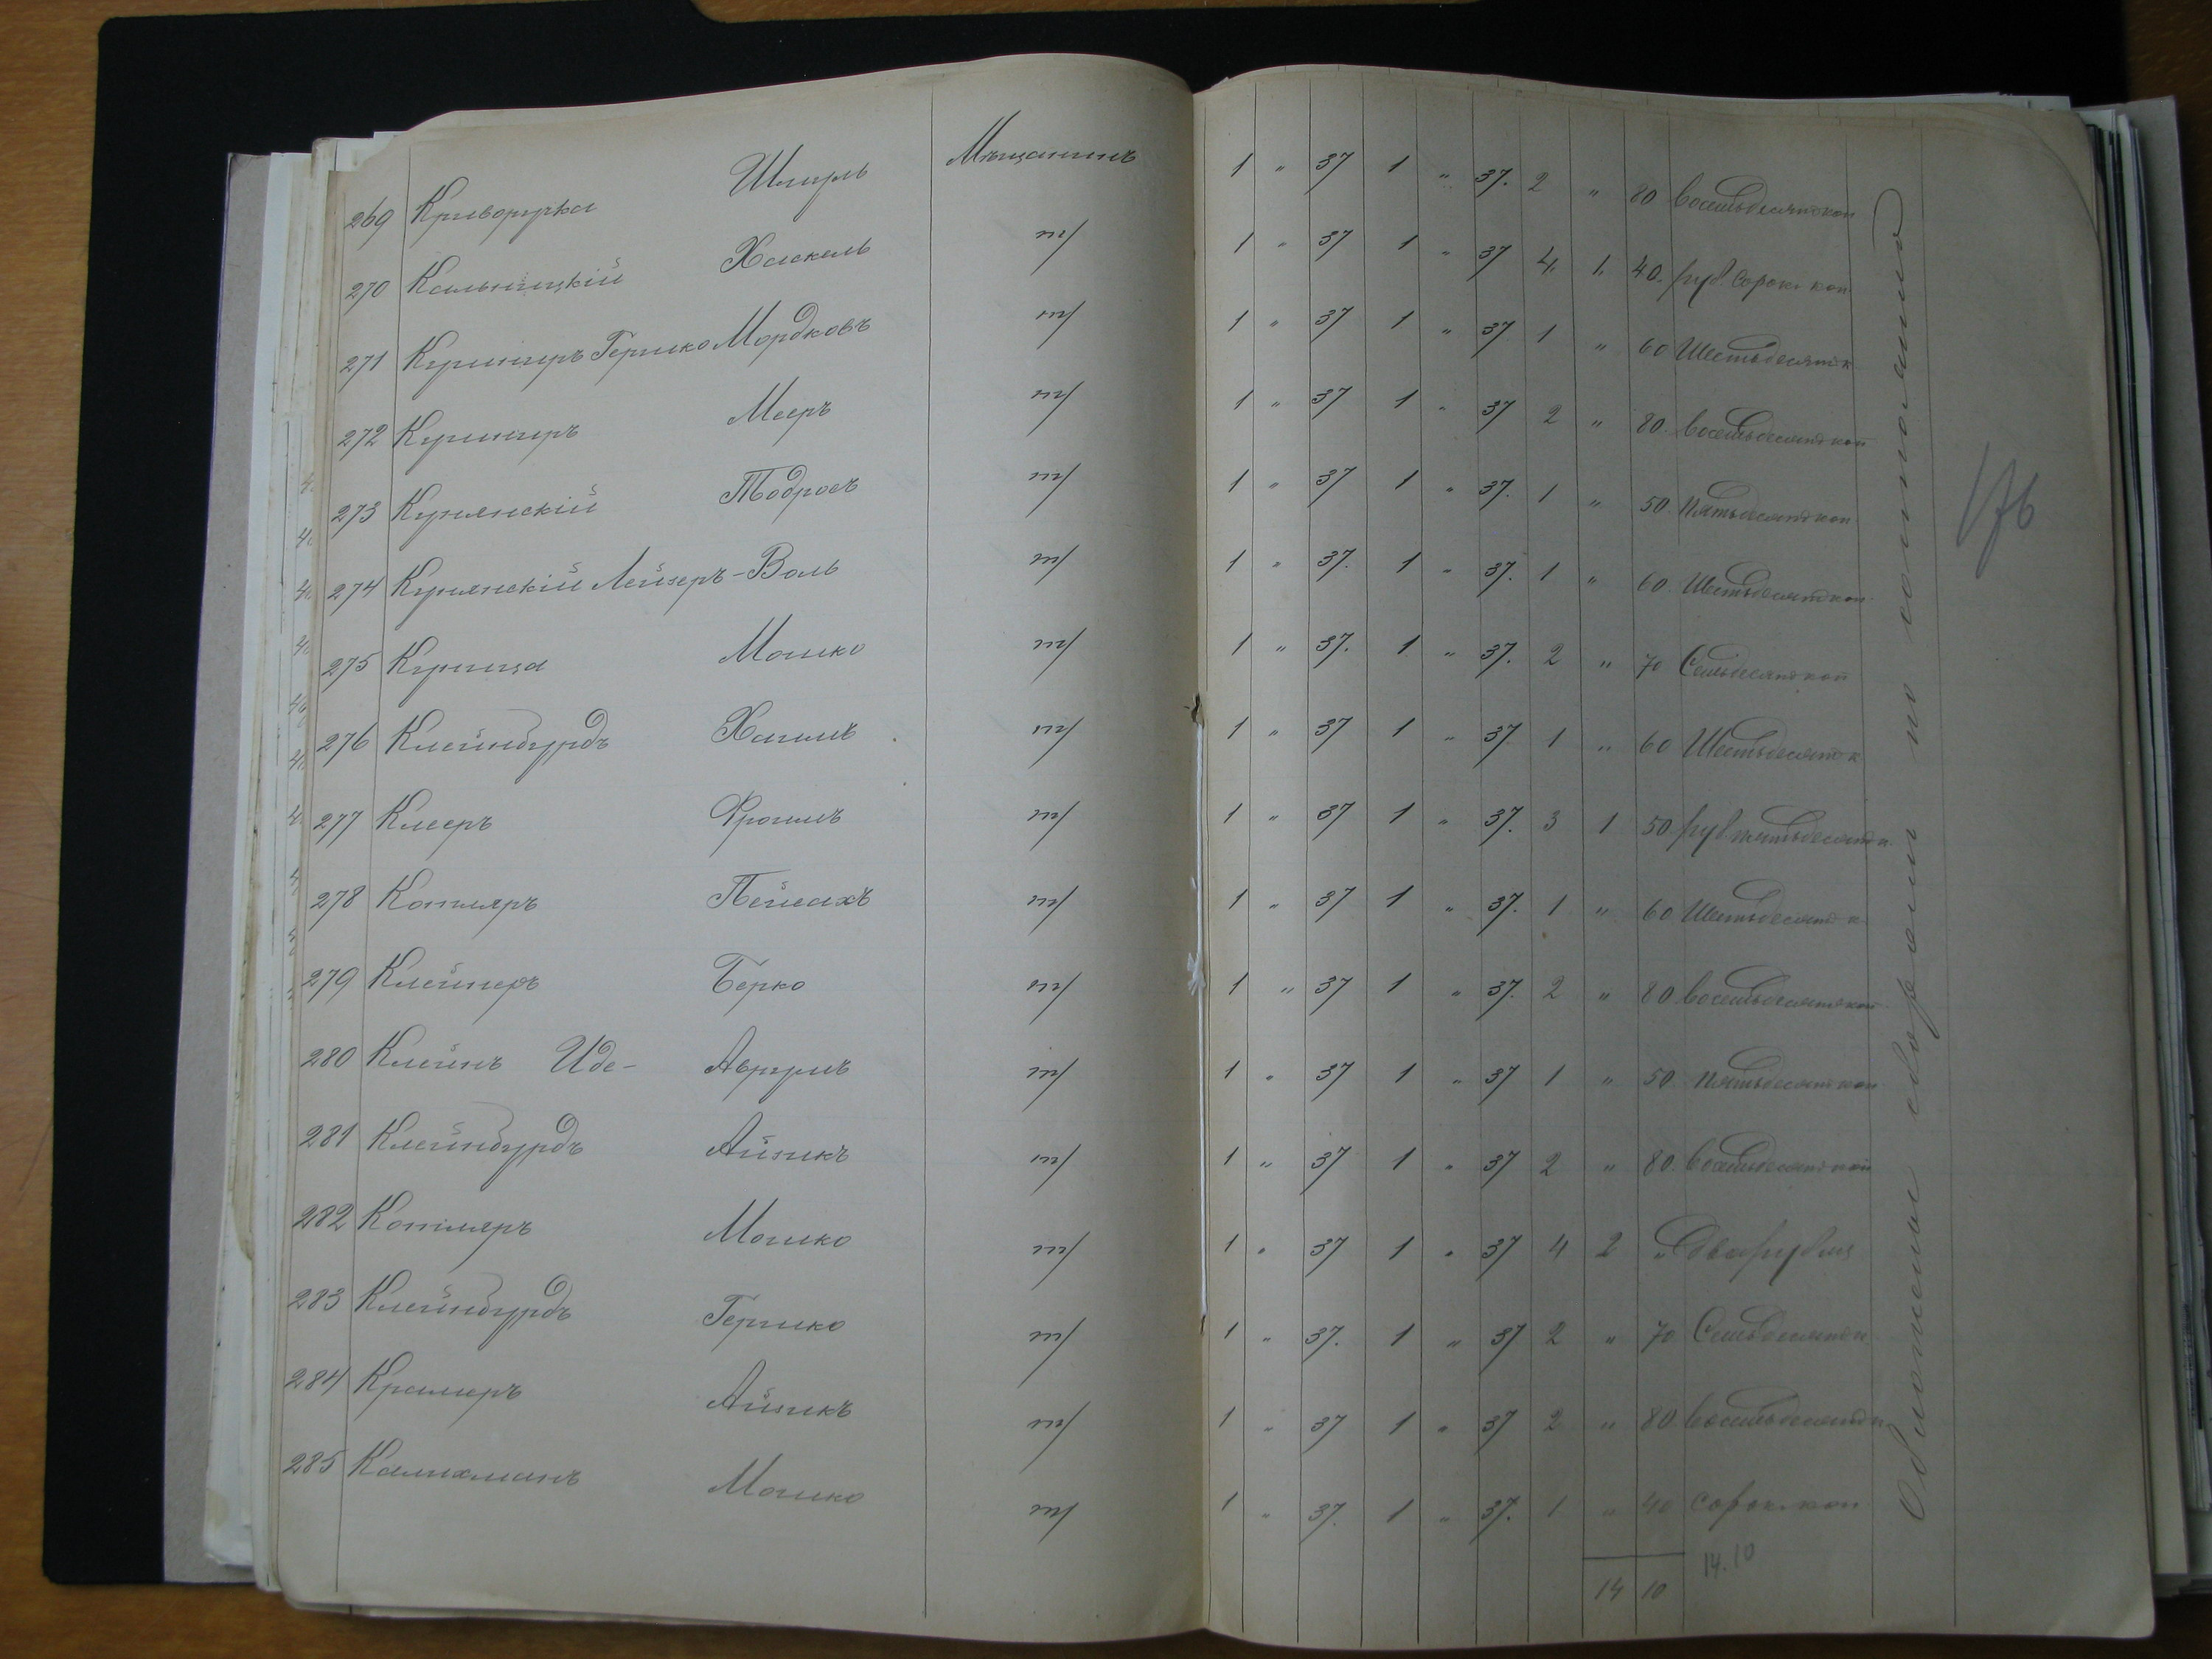 269 Криворучка Шмуль Мѣщанинъ 1 „ 37 1 „ 37. 2 „ 80 восемьдесятъ коп
270 Кальницкій Хаскель т/ 1 „ 37 1 „ 37 4 1 40. руб. сорокъ коп.
271 Кушниръ Гершко Мордковъ т/ 1 „ 37 1 „ 37 1 „ 60 Шестьдесят к
272 Кушниръ Мееръ т/ 1 „ 37 1 „ 37 2 „ 80. восемьдесятъ коп
273 Курлянскій Тодросъ т/ 1 „ 37 1 „ 37. 1 „ 50. пятьдесятъ коп
274 Курлянскій Лейзеръ-Воль т/ 1 „ 37. 1 „ 37. 1 „ 60. Шестьдесят коп
275 Курица Мошко т/ 1 „ 37. 1 „ 37. 2 „ 70 Семьдесятъ коп
276 Клейнбурдъ Хаимъ т/ 1 „ 37 1 „ 37. 1 „ 60 Шестьдесят к
277 Клееръ Фроимъ т/ 1 „ 37 1 „ 37. 3 1 50 руб пятьдесятъ к.
278 Котляръ Пейсахъ т/ 1 „ 37 1 „ 37. 1 „ 60 Шестьдесят к
279 Клейнеръ Берко т/ 1 „ 37 1 „ 37. 2 „ 80 восемьдесятъ коп
280 Клейнъ Иде- Аврумъ т/ 1 „ 37 1 „ 37 1 „ 50. пятьдесят коп
281 Клейнбурдъ Айзикъ т/ 1 „ 37 1 „ 37 2 „ 80. восемьдесят коп
282 Котляръ Мошко т/ 1 „ 37 1 „ 37 4 2 „ два рубля
283 Клейнбурдъ Гершко т/ 1 „ 37. 1 „ 37 2 „ 70 Семьдесятъ к
284 Крамеръ Айзикъ т/ 1 „ 37 1 „ 37 2 „ 80. восемьдесятъ к
285 Калихманъ Мошко т/ 1 „ 37. 1 „ 37. 1 „ 40 сорок коп
14 10 14.10
Обложены сборомъ по состоянію
176